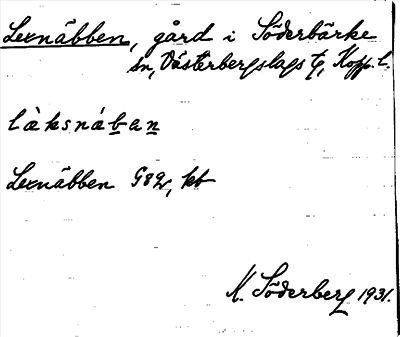 Lexnäbben, gård i Söderbärke
sn, Västerbergslags tg, Kopp. l.
lὰksnában
Lexnäbben G82, kb
M. Söderberg 1931.